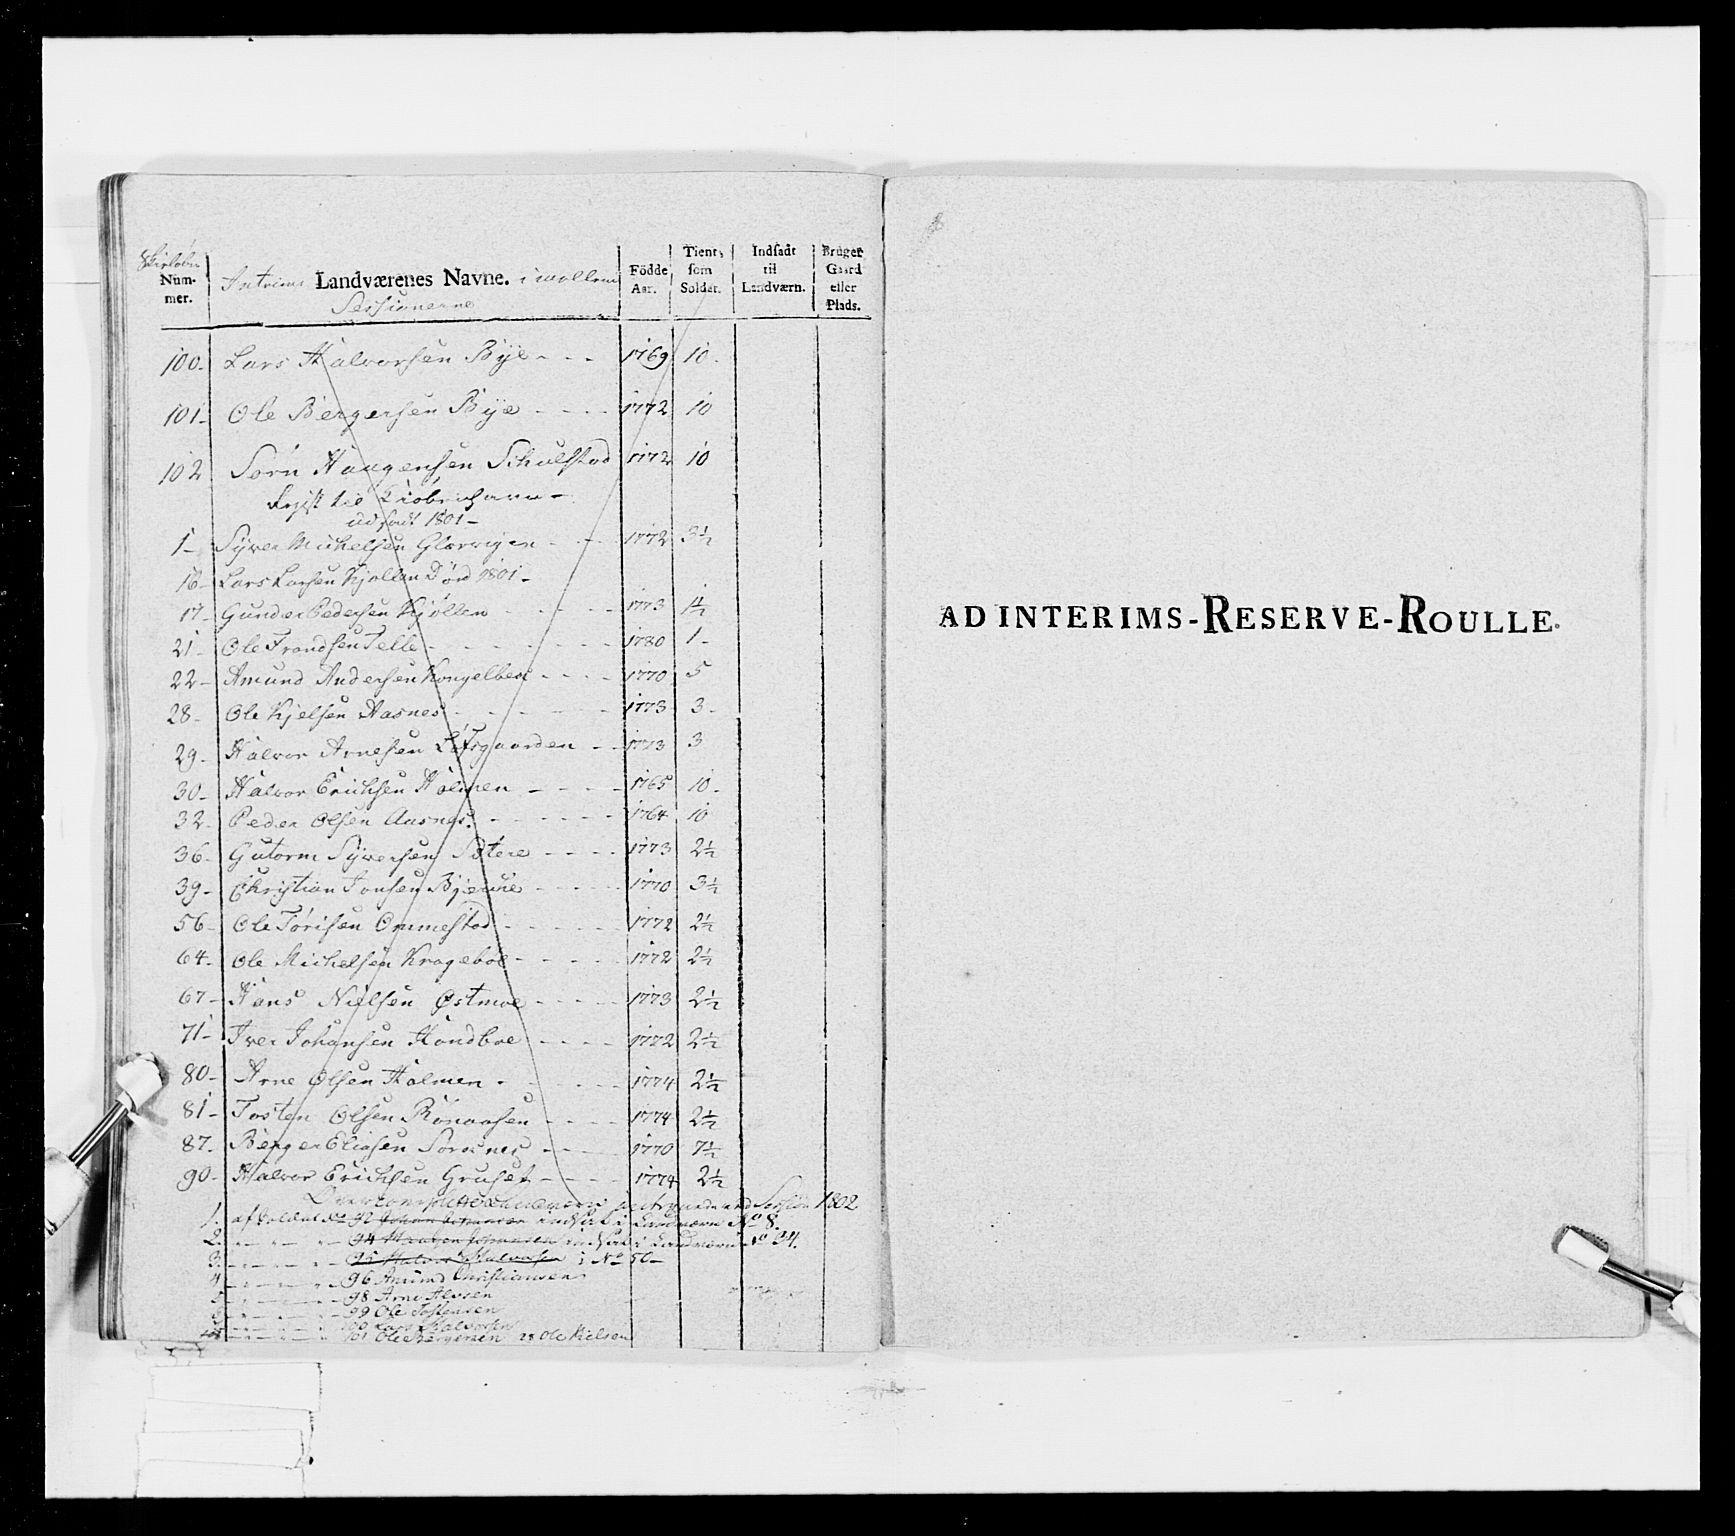 Skiløber
Num-
mer.
Intrims Landværenes Navne. imellem
Sessionerne
Födde
Aar.
Tient
som
Soldat.
Indsadt
til
Landværn.
Bruger
Gaard
eller
Plads.
100. Lars Halvorsen Bye - - - 1769 10.
101. Ole Bergersen Bye - - - - 1772 10
102 Sørn Haagensen Schulstad 1772 10
Reist til Kiöbenhavn -
udsadt 1801 -
1 - Syver Michelsen Glorvigen - - - 1772 3½
16 - Lars Larsen Kjøllen Død 1801 -
17 - Gunder Pedersen Kjøllen - - - - - 1773 1½
21 - Ole Trondsen Telle - - - - - - - 1780 1 -
22 - Amund Andersen Kongelben - - - - 1770 5
28 - Ole Kjelsen Aasnes - - - - - - 1773 3 -
29 - Halvor Arnesen Löfsgaarden - - 1773 3
30 - Halvor Erichsen Holmen - - - - 1765 10 -
32 - Peder Olsen Aasnes. - - - - - - 1764 10
36 - Gutorm Syversen Sætere - - - - 1773 2½
39 - Christian Jonsen Bjercke - - - - - 1770 3½
56 - Ole Torisen Ommestad - - - - - - 1772 2½
64 - Ole Michelsen Krogeboe - - - - - 1772 2½
67 - Hans Nielsen Østmoe - - - - - 1773 2½
71 - Iver Johansen Hondboe - - - - 1772 2½
80 - Arne Olsen Holmen - - - - - - 1774 2½
81 - Tosten Olsen Rönaasen - - - - 1774 2½
87. Berger Eliasen Sorosnes - - - - 1770 7½
90 - Halvor Erichsen Gruset - - - - 1774 2½
Session 1802
1. af Soldat No 92 indsat i Landværn No 8.
2. - - - - 94 indsat i Landværn No 34.
3. - - - - 95 Halvor Halvorsen i No 50 -
4 - - - - 96 Amund Christiansen
5 - - - - 98 Arne
6 - - - - 99 Ole Tostensen
- - - - 100 Lars Halvorsen
- - - - 101 Ole Bergersen 28 Ole Kielsen
AD INTERIMS-RESERVE-ROULLE.